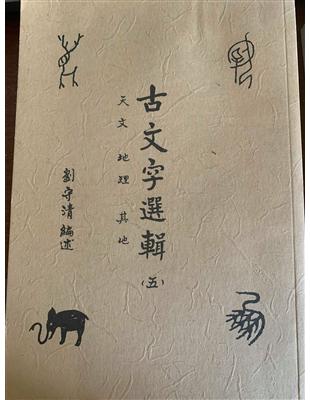 古文字選輯(五)
天文 地理 其他
劉守清編述